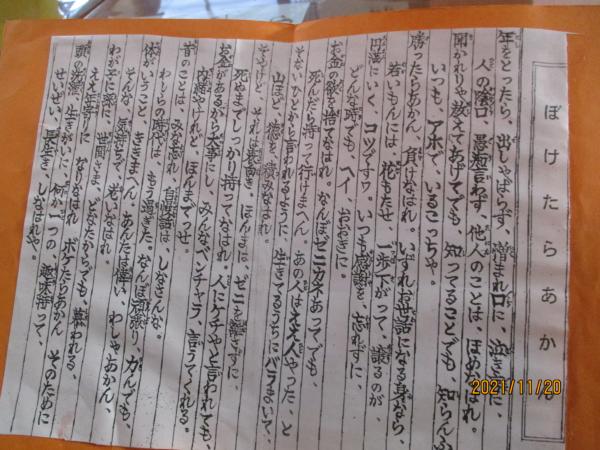 ぼけたらあかん
年をとったら、出しゃばらず、憎まれ口に、泣きごとに、
人の陰口、愚痴言わず、他人のことは、ほめなはれ。
聞かれりゃ教えてあげてでも、知ってることでも、知らんふり
いつも、アホで、いるこっちゃ。
勝ったらあかん、負けなはれ。いずれお世話になる身なら、
若いもんには、花もたせ、一歩さがって、譲るのが、
円満にいく、コツですワ。いつも感謝を、忘れずに、
どんな時でも、ヘイ おおきに。
お金の欲を捨てなはれ。なんぼゼニカネあってでも、
死んだら持って行けまへん。あの人はええ人やった、と
そないひとから言われるように 生きてるうちに、バラまいて、
山ほど、徳を、積みなはれ。
そやけど、それは表向き。ほんまは、ゼニを離さずに、
死ぬまでしっかり持ってなはれ。人にケチやと言われても、
お金があるから大事にし、みんなベンチャラ、言うてくれる。
内緒やけれど、ほんまでっせ。
昔のことは、みな忘れ 自慢話は しなさんな。
わしらの時代は、もう過ぎた。なんぼ頑張り、力んでも、
体がいうこと、ききまへん。あんたは偉い、わしゃあかん、
そんな 気持ちで、おいなはれ。
わが子に孫に、世間さま、どなたからでも、慕われる、
ええ年寄りに なりなはれ ボケたらあかん そのために
頭の洗濯、生きがいに、何か一つの 趣味持って、
せいぜい、長生き、しなはれや。
2021/11/20